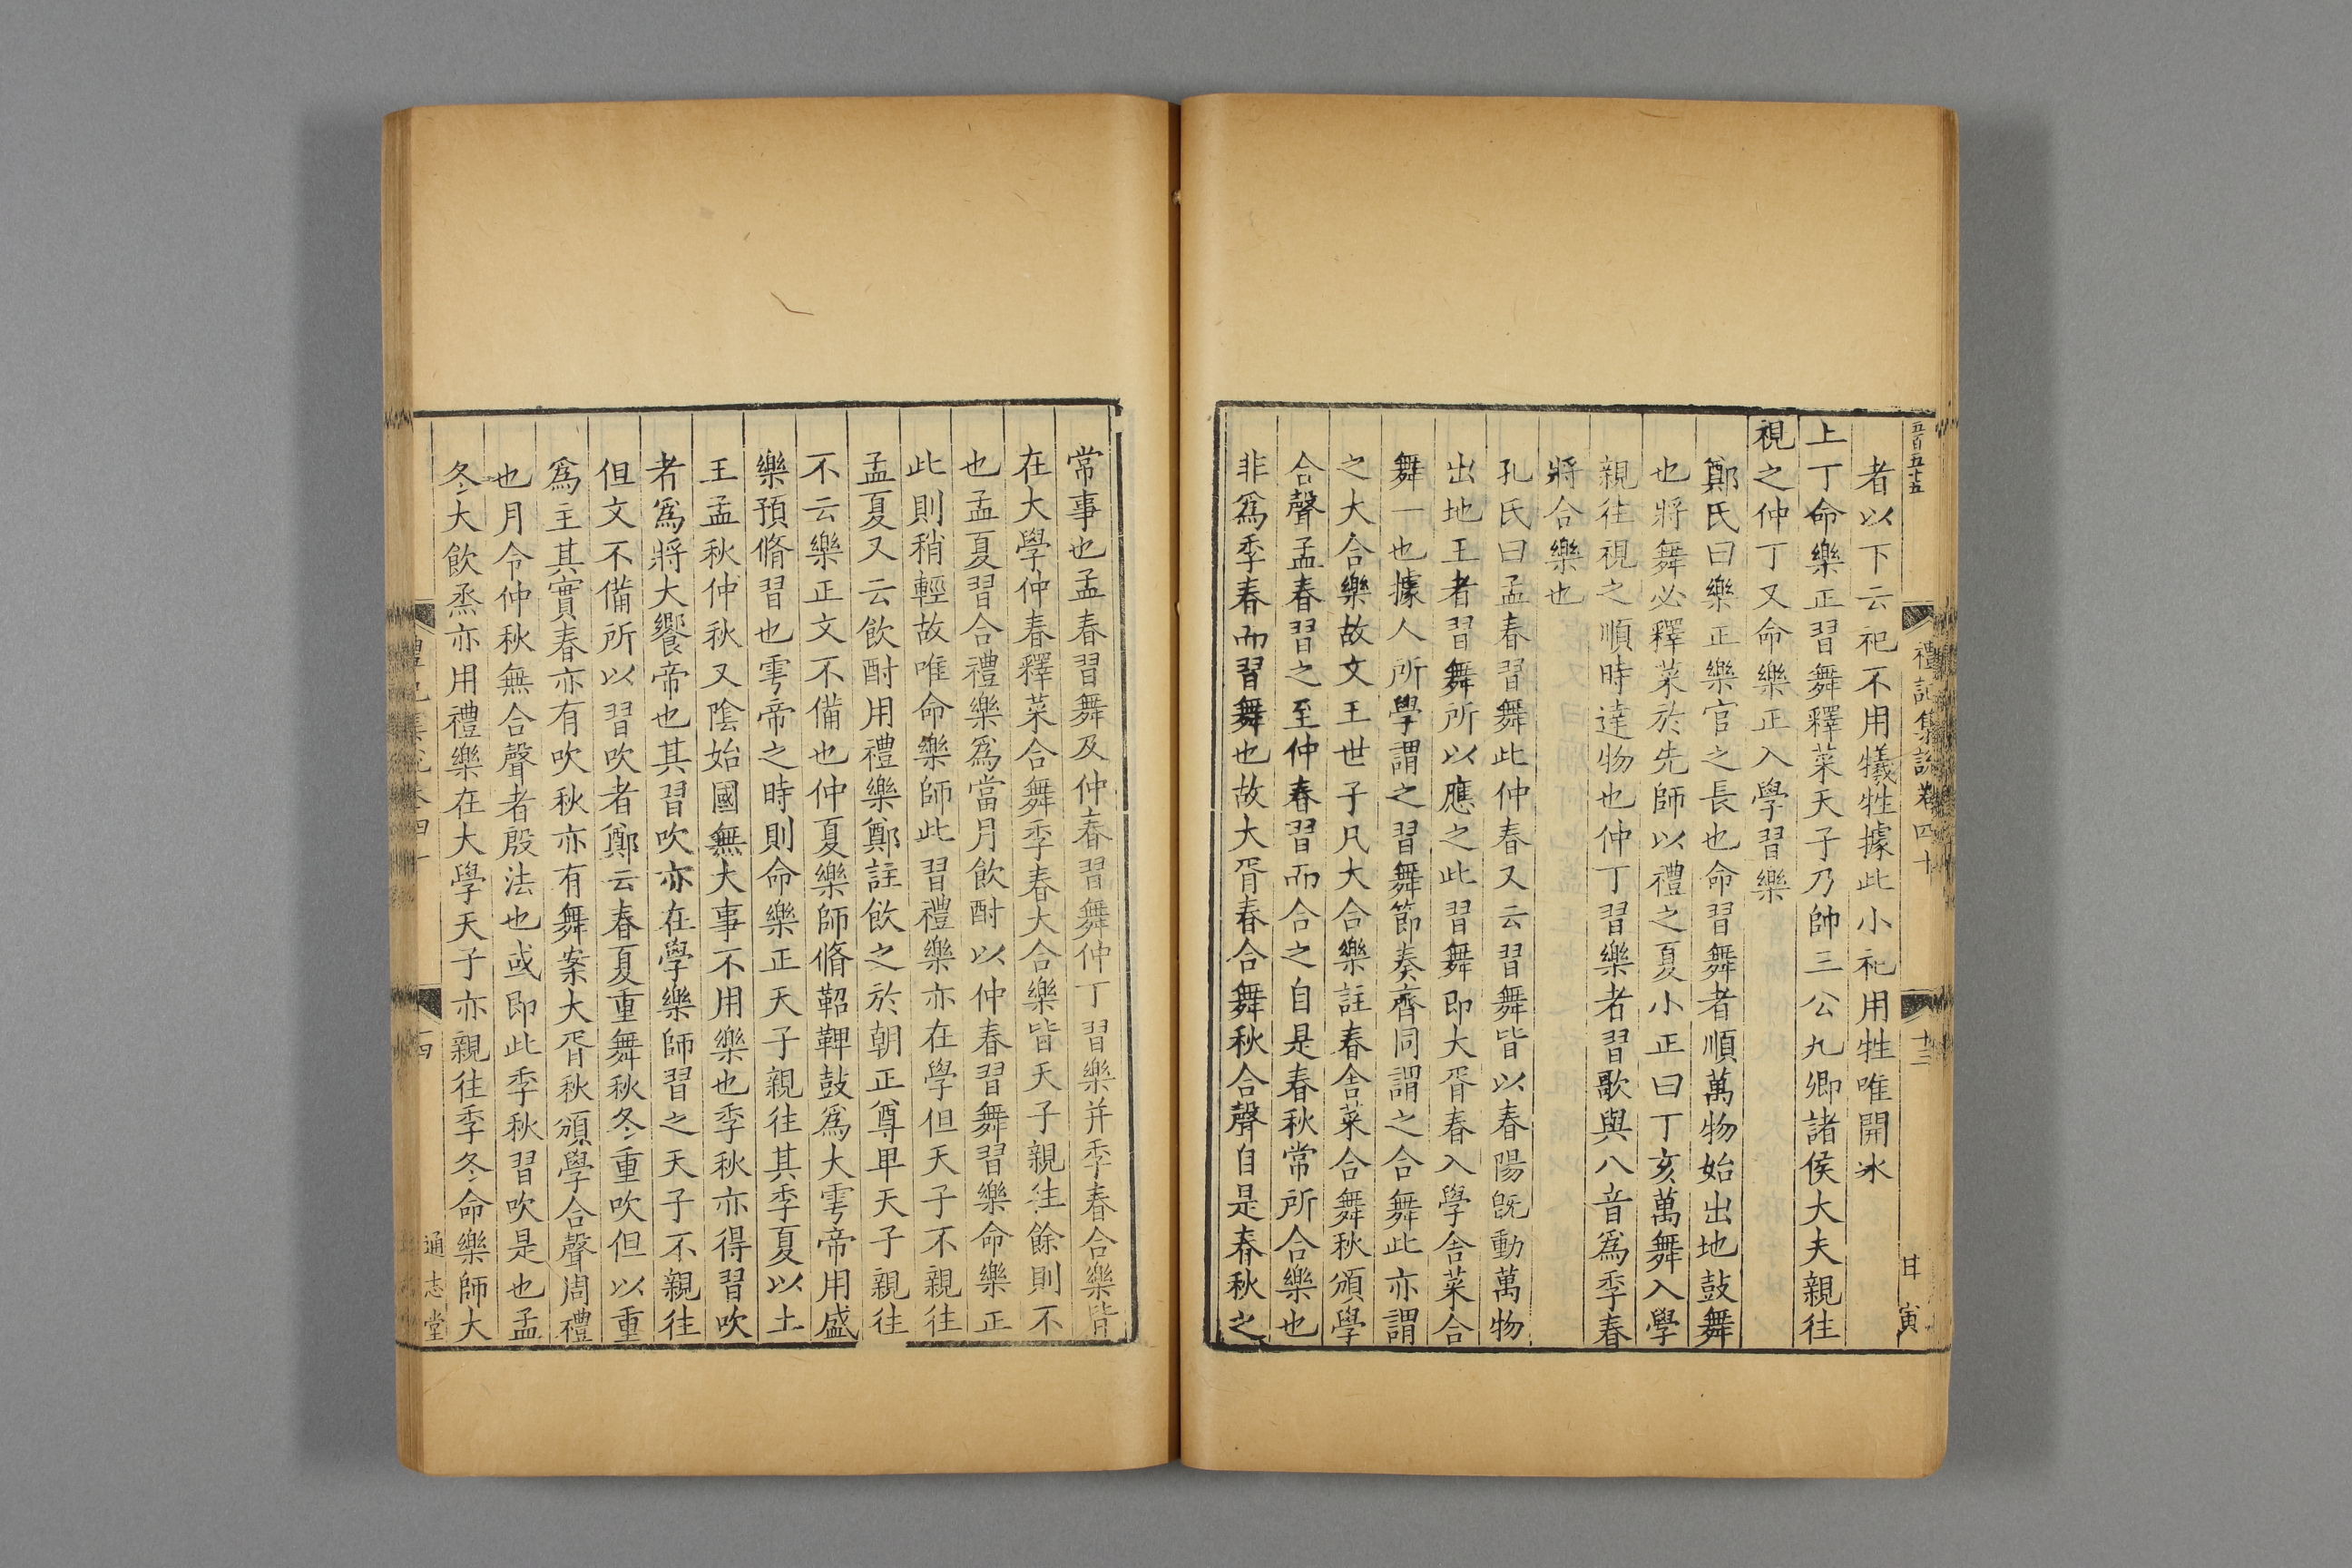 五百五十五
禮記集說卷四十
十三
甘寅
者以下云祀不用犧牲據此小祀用牲唯開冰
上丁命樂正習舞釋菜天子乃帥三公九卿諸侯大夫親往
視之仲丁又命樂正入學習樂
鄭氏曰樂正樂官之長也命習舞者順萬物始出地鼓舞
也將舞必釋菜於先師以禮之夏小正曰丁亥萬舞入學
親往視之順時達物也仲丁習樂者習歌與八音爲季春
將合樂也
孔氏曰孟春習舞此仲春又云習舞皆以春陽旣動萬物
出地王者習舞所以應之此習舞即大胥春入學舍菜合
舞一也據人所學謂之習舞節奏齊同謂之合舞此亦謂
之大合樂故文王世子凡大合樂註春舍菜合舞秋頒學
合聲孟春習之至仲春習而合之自是春秋常所合樂也
非爲季春而習舞也故大胥春合舞秋合聲自是春秋之
常事也孟春習舞及仲春習舞仲丁習樂并季春合樂皆
在大學仲春釋菜合舞季春大合樂皆天子親往餘則不
也孟夏習合禮樂爲當月飲酎以仲春習舞習樂命樂正
此則稍輕故唯命樂師此習禮樂亦在學但天子不親往
孟夏又云飲酎用禮樂鄭註飲之於朝正尊卑天子親往
不云樂正文不備也仲夏樂師脩鞀鞞鼓爲大雩帝用盛
樂預脩習也雩帝之時則命樂正天子親往其季夏以土
王孟秋仲秋又陰始國無大事不用樂也季秋亦得習吹
者爲將大饗帝也其習吹亦在學樂師習之天子不親往
但文不備所以習吹者鄭云春夏重舞秋冬重吹但以重
爲主其實春亦有吹秋亦有舞案大胥秋頒學合聲周禮
也月令仲秋無合聲者殷法也或即此季秋習吹是也孟
冬大飲烝亦用禮樂在大學天子亦親往季冬命樂師大
禮記集說卷四十
十四
通志堂